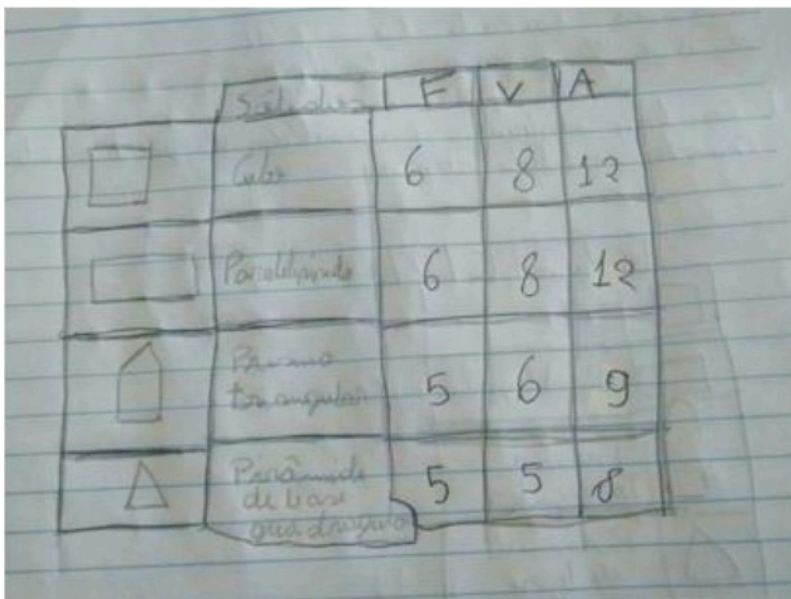 Sólidos F V A
Cubo 6 8 12
Paralelepípedo 6 8 12
Prisma
triangular 5 6 9
Pirâmide
de base 5 5 8